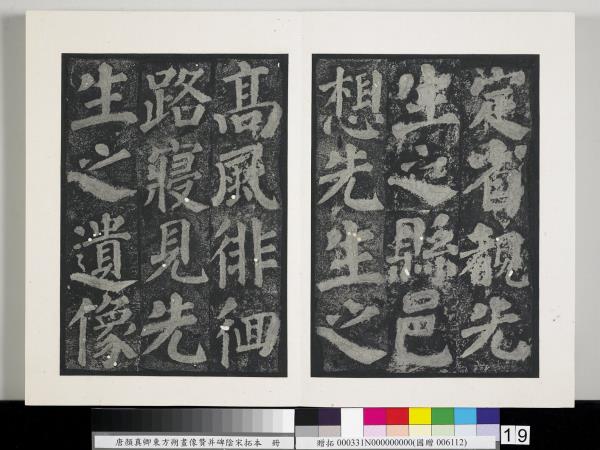 定省覩先
生之縣邑
想先生之
高風徘徊
路寢見先
生之遺像
唐顏真卿東方朔畫像贊并碑陰宋拓本 冊
贈拓 000331N000000000(國贈 006112)
19